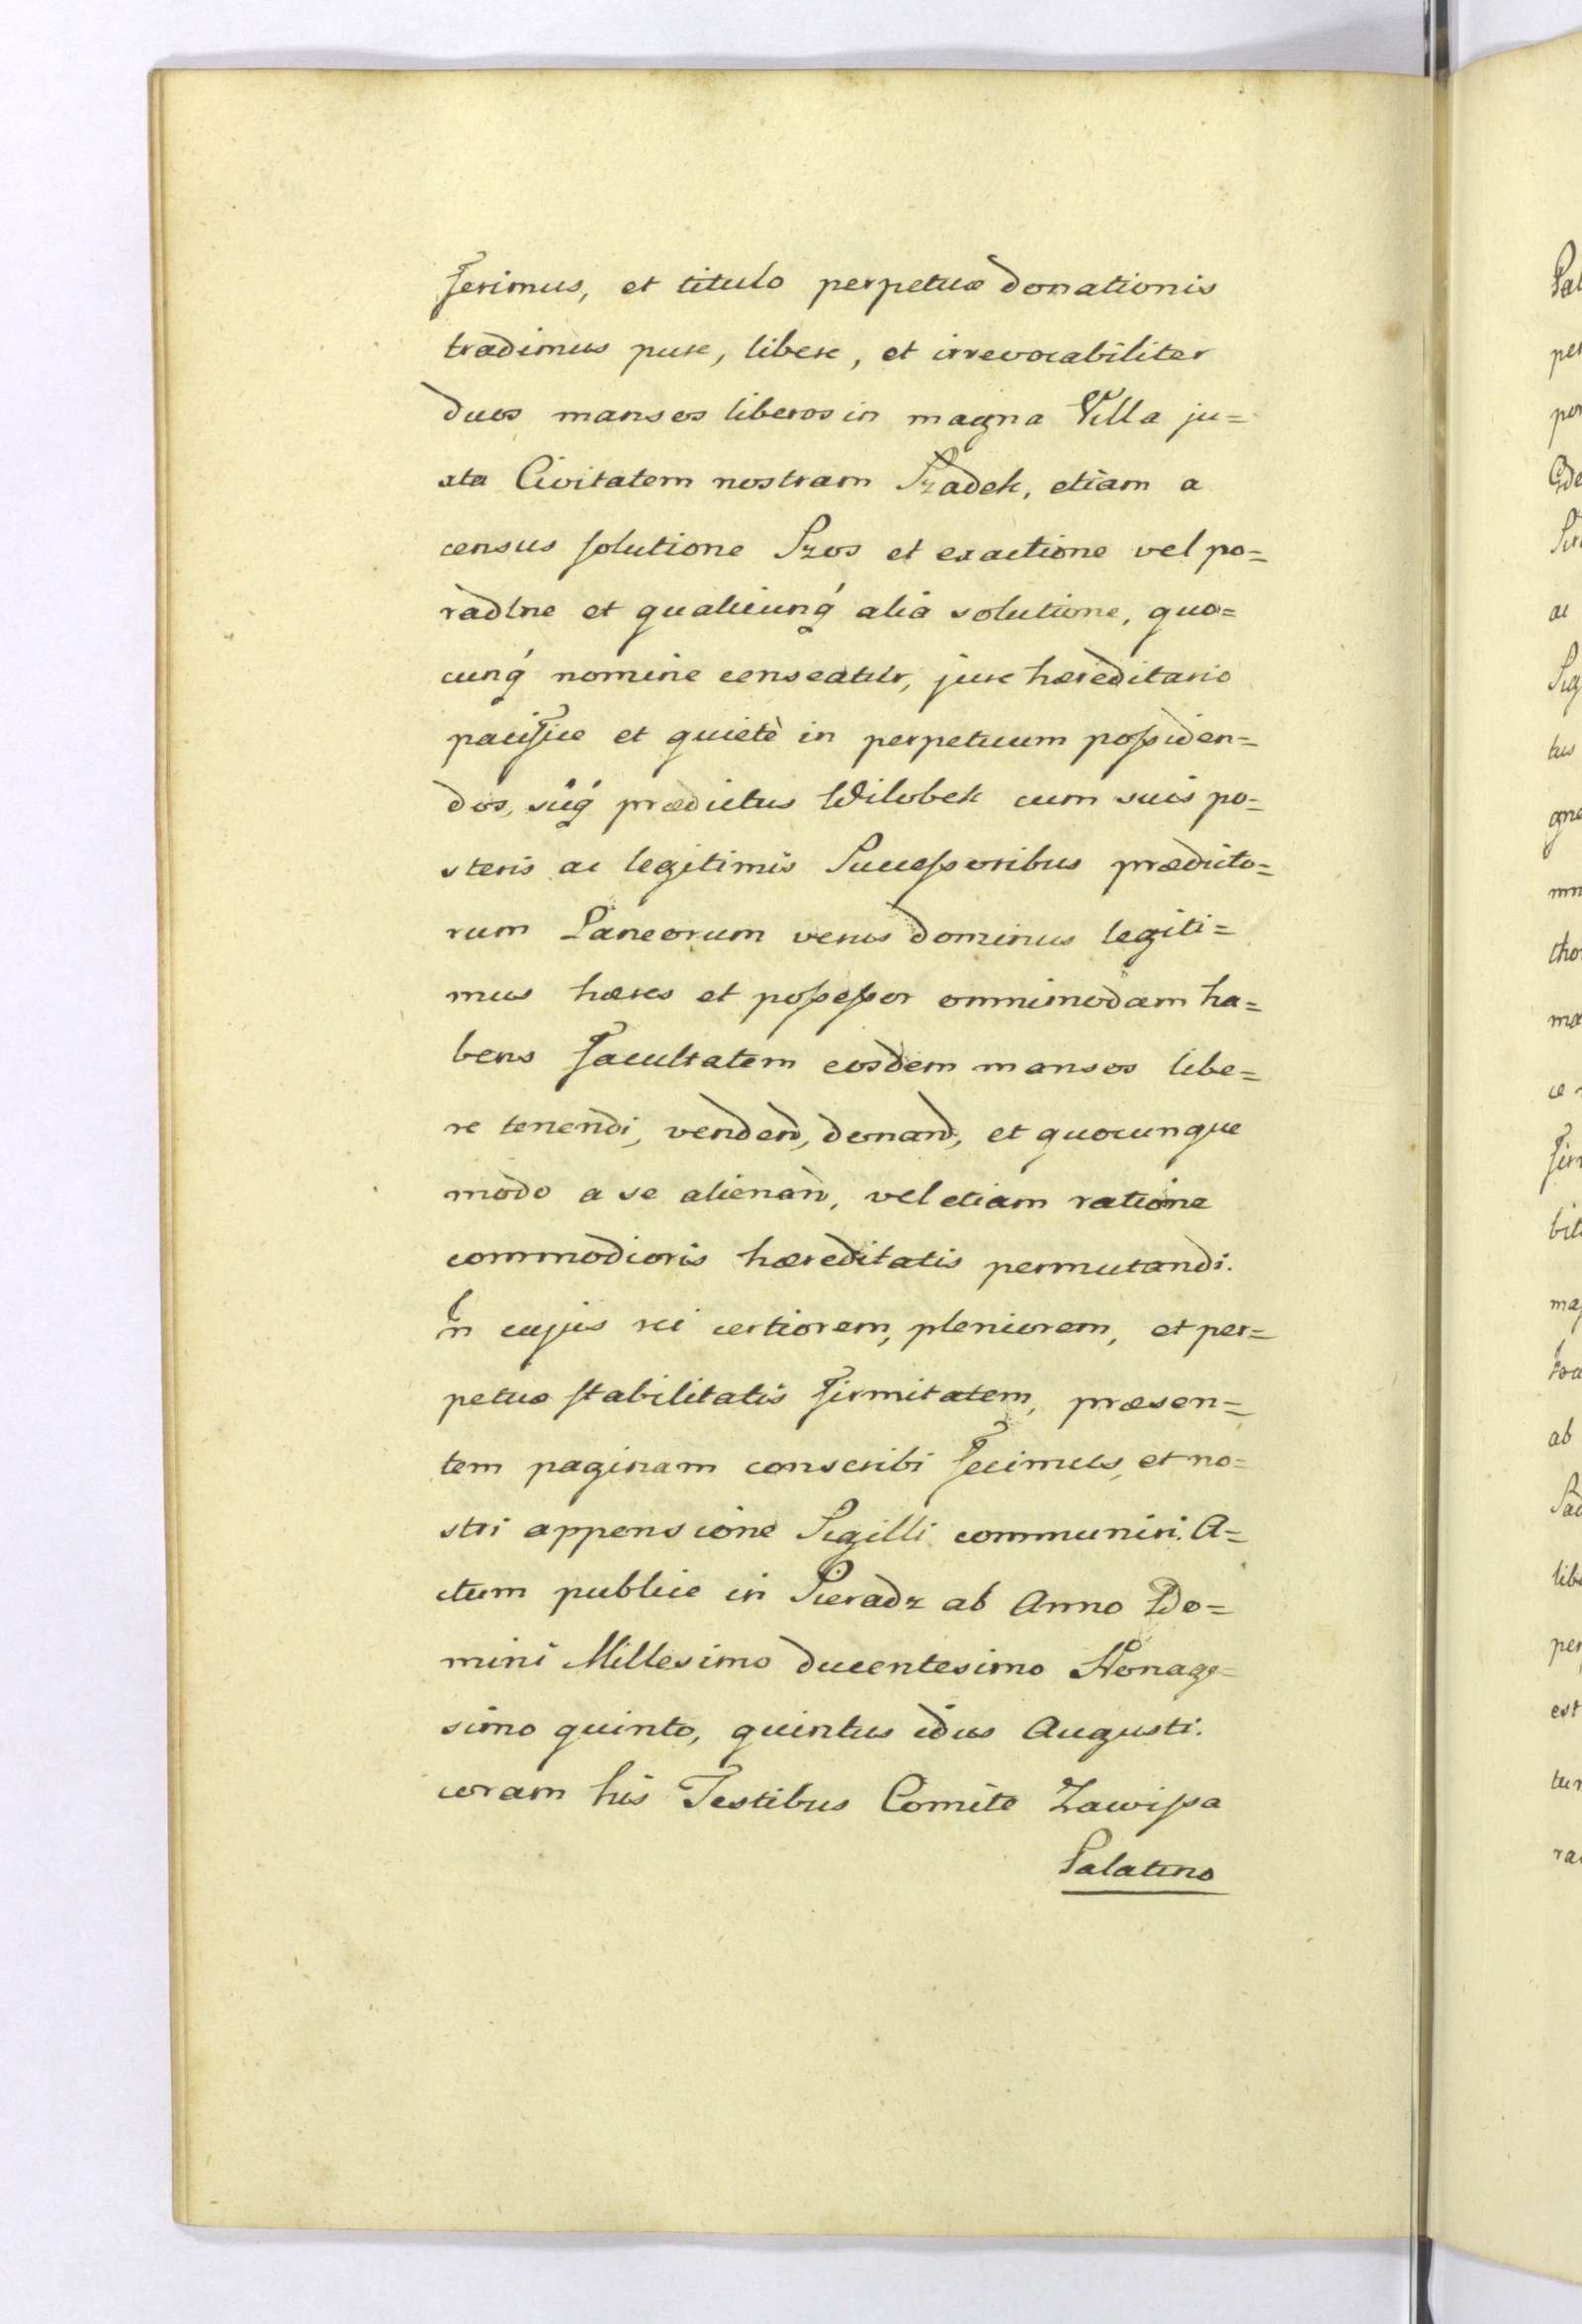 ferimus, et titulo perpetuæ donationis
tradimus pure, libere, et irrevocabiliter
duos mansos liberos in magna Villa ju=
xta Civitatem nostram Szadek, etiam a
census solutione Szos et exactione vel po=
radlne et qualicunq́ alia solutione, quo=
cunq́ nomine censeatur, jure hæreditario
pacifice et quietè in perpetuum possiden=
dos, sitq́ prædictus Wilobek cum suis po=
steris ac legitimis Successoribus prædicto=
rum Laneorum verus dominus legiti=
mus hæres et possessor omnimodam ha=
bens facultatem eosdem mansos libe=
re tenendi, venden̄d, donand, et quocunque
modo a se alienan̄, vel etiam ratione
commodioris hæreditatis permutandi.
In cujus rei certiorem, pleniorem, et per=
petuæ stabilitatis firmitatem, præsen=
tem paginam conscribi fecimus, et no=
stri appensione Sigilli communiri. A=
ctum publice in Sieradz ab Anno Do=
mini Millesimo ducentesimo Nonage=
simo quinto, quintus idus Augusti.
coram his Testibus Comite Zawissa
Palatino
Pal
per
por
ac
tus
gne
tho
ab
est